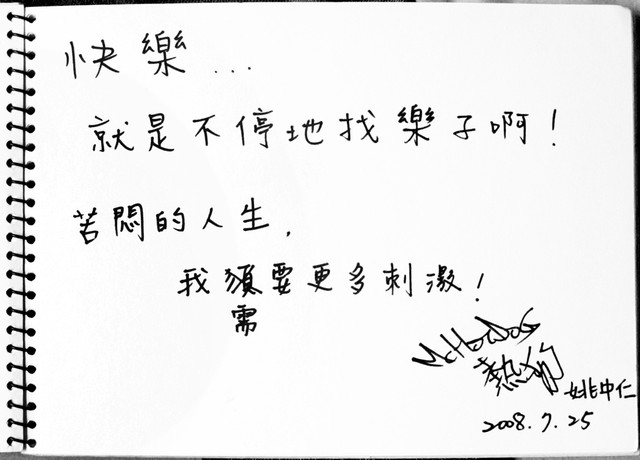 快樂...
就是不停地找樂子啊!
苦悶的人生,
我須要更多刺激!
需
MC HOTDOG
熱狗
姚中仁
2008.7.25